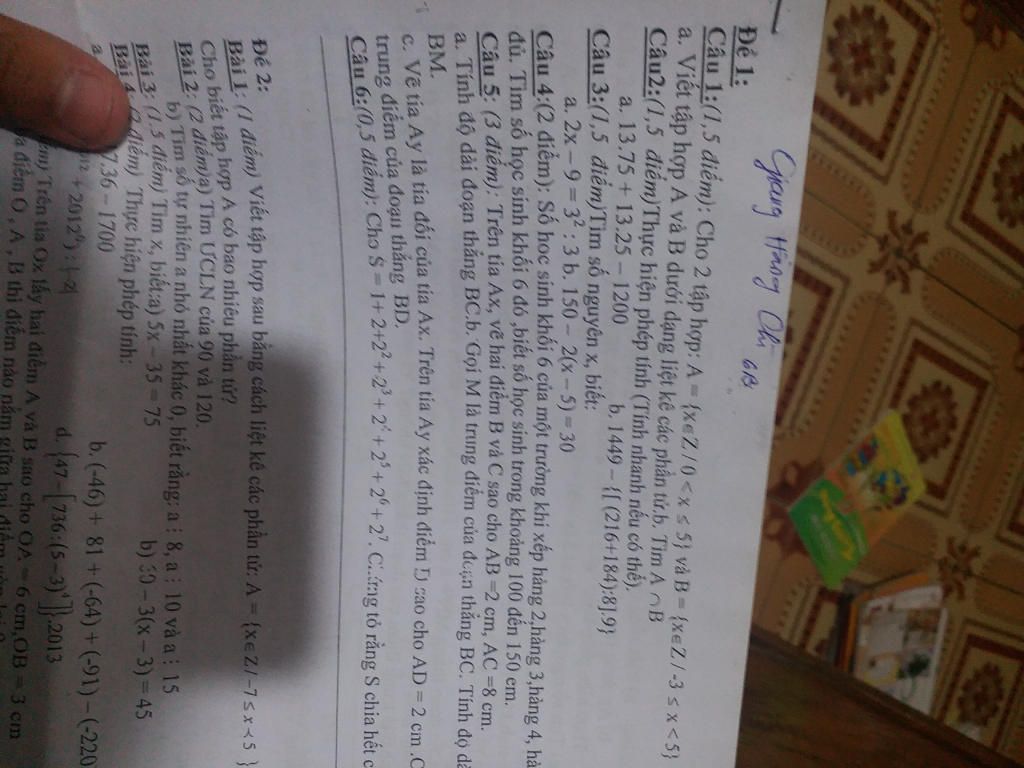 Giang Hồng Chi 6B
Đề 1:
Câu 1:(1,5 điểm): Cho 2 tập hợp: A = {x∈Z / 0 < x ≤ 5} và B = {x∈Z / -3 ≤ x < 5}
a. Viết tập hợp A và B dưới dạng liệt kê các phần tử.b. Tìm A ∩ B
Câu2:(1,5 điểm)Thực hiện phép tính (Tính nhanh nếu có thể).
a. 13.75 + 13.25 – 1200 b. 1449 – {[(216+184):8].9}
Câu 3:(1,5 điểm)Tìm số nguyên x, biết:
a. 2x – 9 = 3² : 3 b. 150 – 2(x – 5) = 30
Câu 4:(2 điểm): Số học sinh khối 6 của một trường khi xếp hàng 2,hàng 3,hàng 4,
đủ. Tìm số học sinh khối 6 đó ,biết số học sinh trong khoảng 100 đến 150 em.
Câu 5: (3 điểm): Trên tia Ax, vẽ hai điểm B và C sao cho AB =2 cm, AC =8 cm.
a. Tính độ dài đoạn thẳng BC.b. Gọi M là trung điểm của đoạn thẳng BC. Tính độ
BM.
c. Vẽ tia Ay là tia đối của tia Ax. Trên tia Ay xác định điểm D sao cho AD = 2 cm .C
trung điểm của đoạn thẳng BD.
Câu 6:(0,5 điểm): Cho S = 1+ 2+2² +2³ + 2⁴ + 2⁵ + 2⁶ + 2⁷. Chứng tỏ rằng S chia hết c
Đề 2:
Bài 1: (1 điểm) Viết tập hợp sau bằng cách liệt kê các phần tử: A = {x∈Z / −7 ≤ x ≺ 5 }
Cho biết tập hợp A có bao nhiêu phần tử?
Bài 2: (2 điểm)a) Tìm ƯCLN của 90 và 120.
b) Tìm số tự nhiên a nhỏ nhất khác 0, biết rằng: a ⋮ 8, a ⋮ 10 và a ⋮ 15
Bài 3: (1.5 điểm) Tìm x, biết:a) 5x – 35 = 75 b) 30 – 3(x – 3) = 45
Bài 4: điểm) Thực hiện phép tính:
a. 7.36 – 1700 b. (-46) + 81 + (-64) + (-91) – (-220)
+ 2012⁰) : |-2| d. {47 – [736:(5–3)⁴]}.2013
Trên tia Ox lấy hai điểm A và B sao cho OA = 6 cm,OB = 3 cm
điểm O , A , B thì điểm nào nằm giữa hai điểm